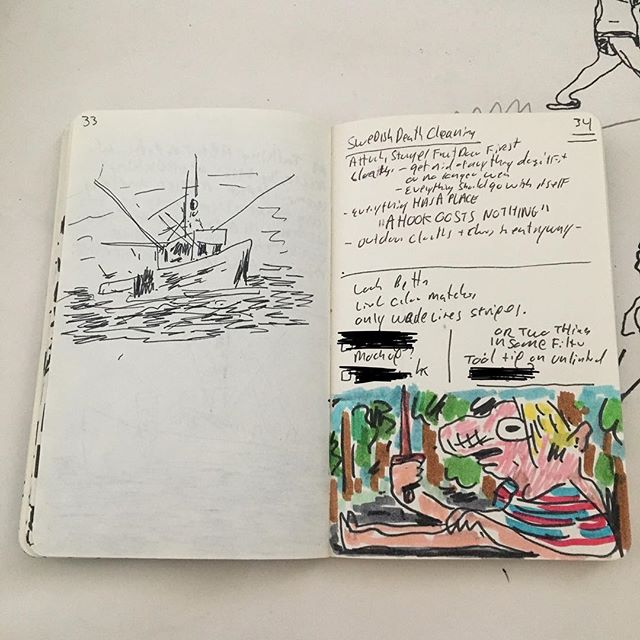 33
34
Swedish Death Cleaning
Attach, Stuga/ First Door First
Clothes - get rid of anything doesn't fit
or no longer worn
- Everything should go with itself
- everything HAS A PLACE
"A HOOK COSTS NOTHING"
- outdoor cloths + shoes in entryway -
Look Better
color matches
only wide lines stripes.
Mockup?
or Two Things
in same Filter
Tool tip on unlinked